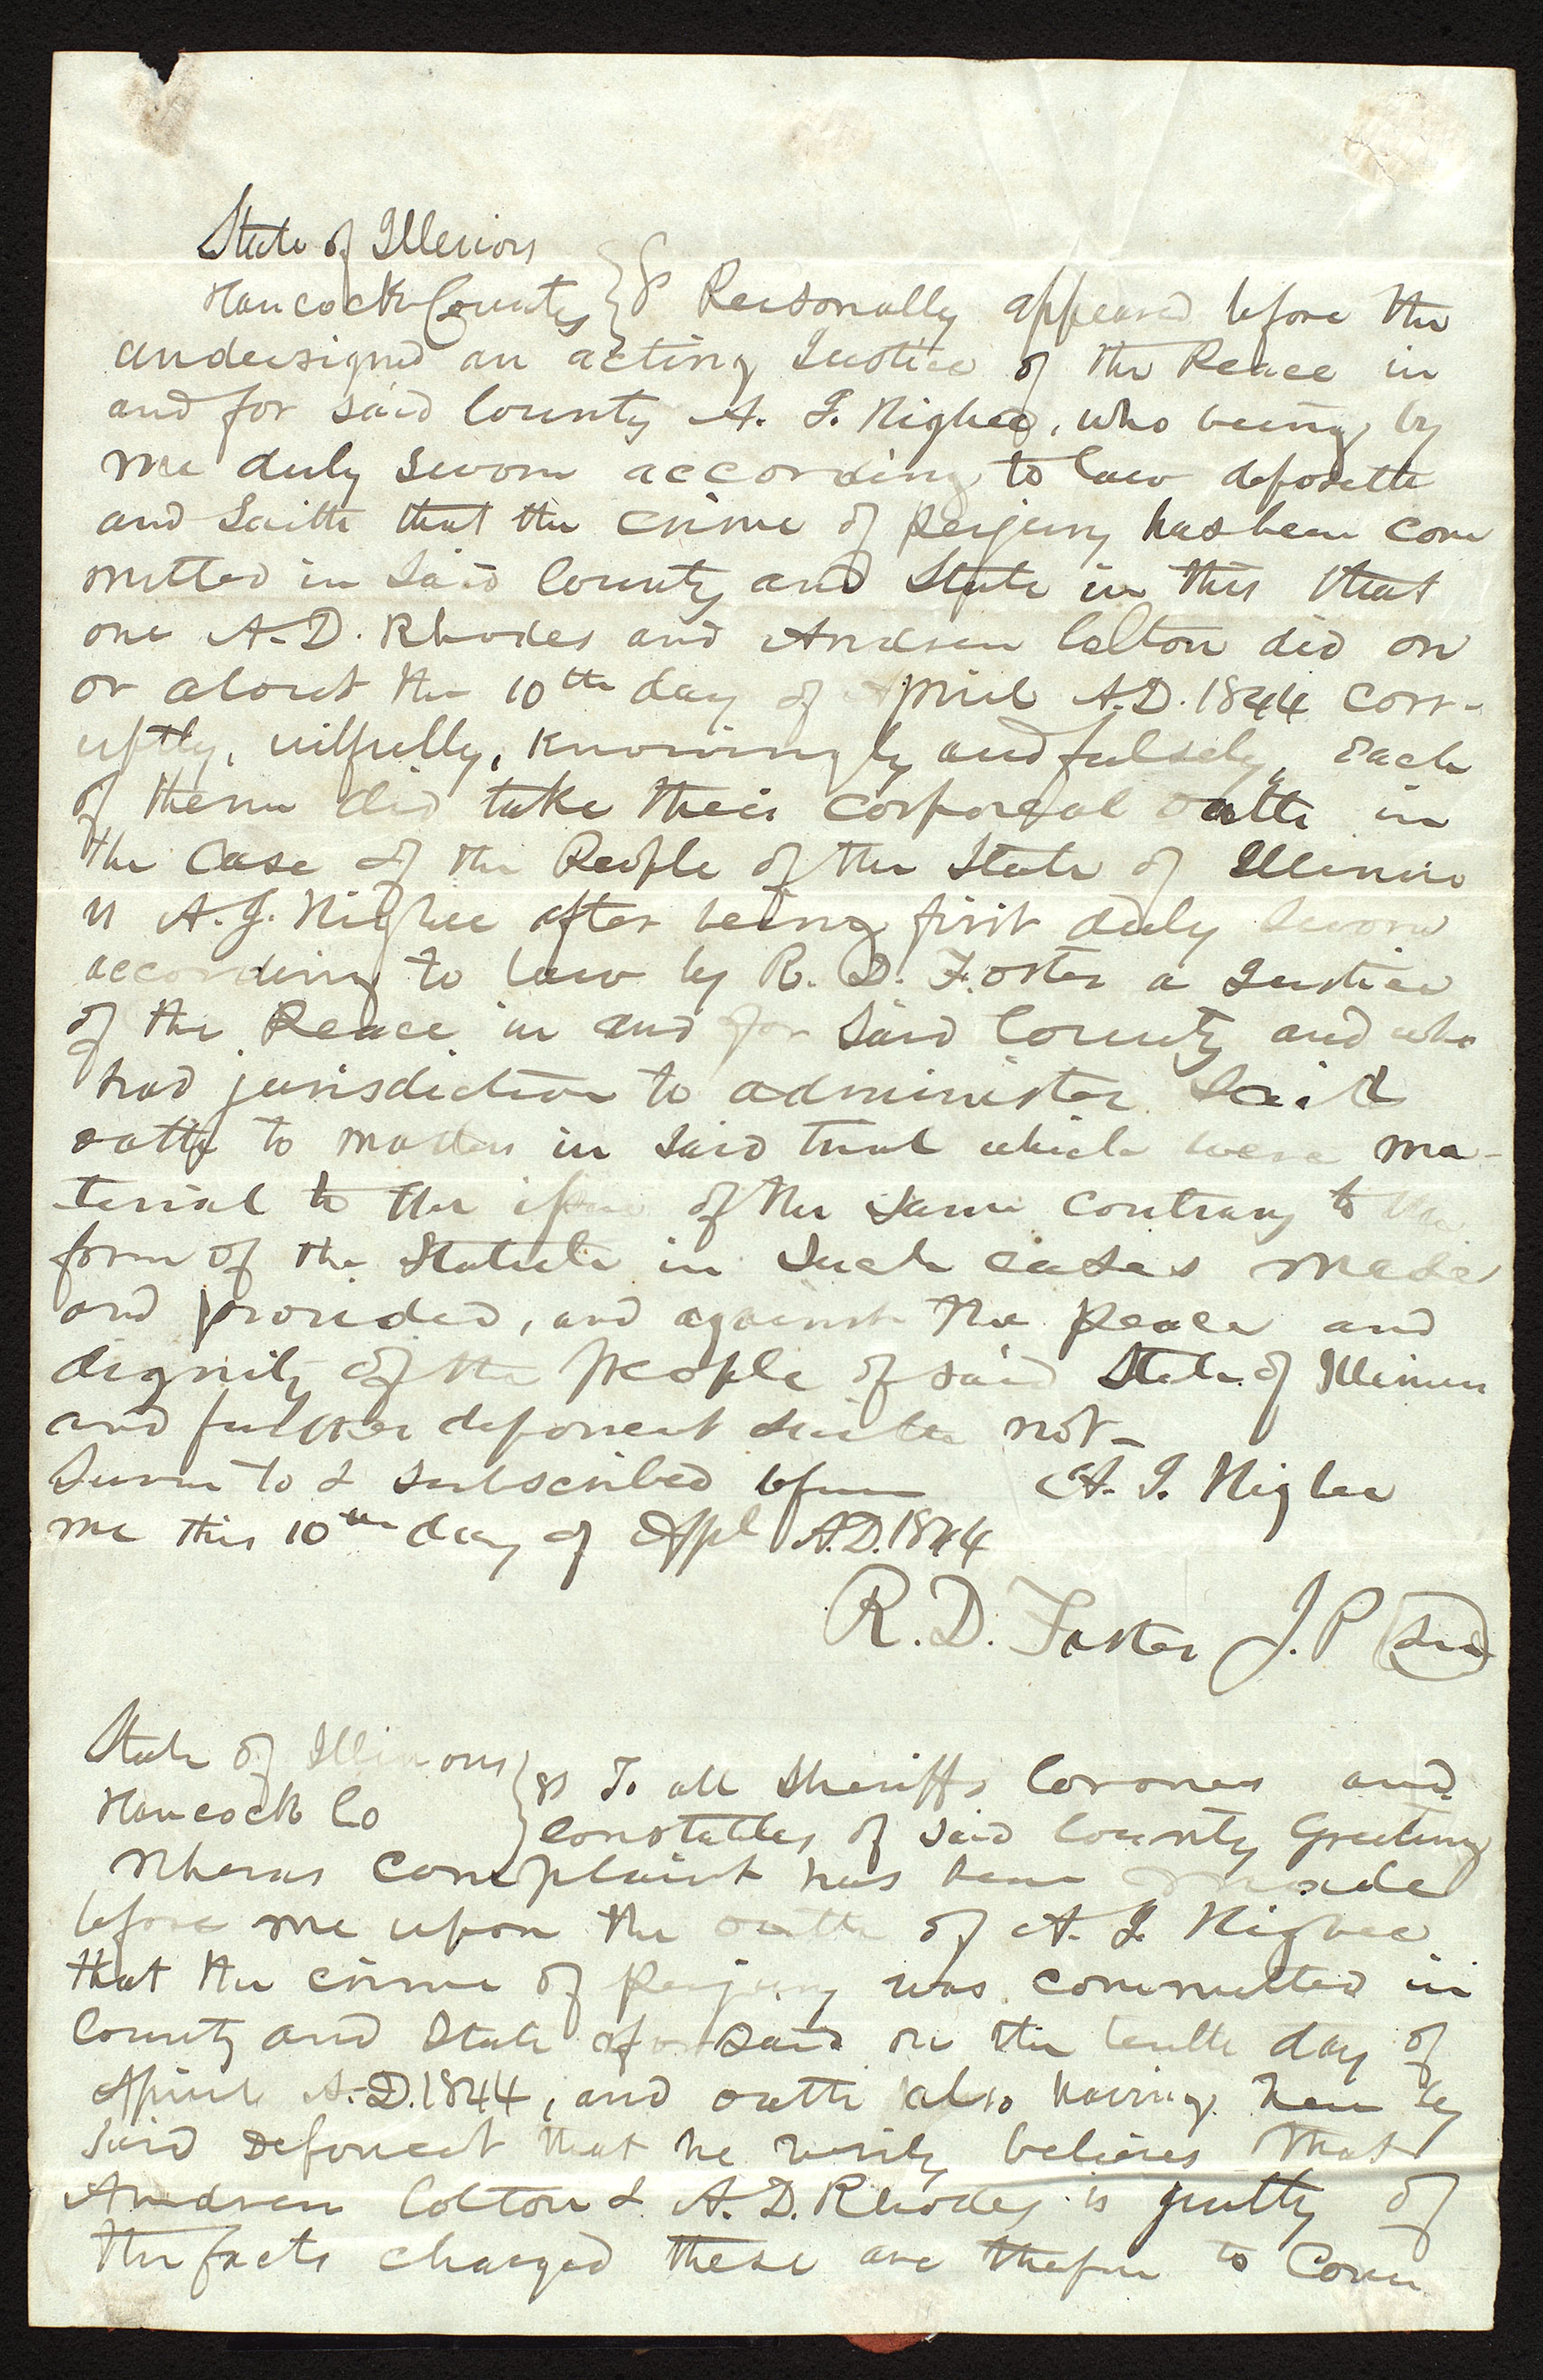 State of Illinios
Hancock County } S Personally appeared before the
undersigned an acting Justice of the Peace in
and for said County A. J. Higbee, who being by
me duly sworn according to law deposeth
and saith that the crime of perjury has been com
mitted in said County and State in this that
one A. D. Rhodes and Andrew Colton did on
or about the 10th day of April A.D. 1844 corr-
uptly, wilfully, knowingly and falsely, each
of them did take their corporeal oath in
the case of the People of the State of Illinois
vs A. J. Higbee after being first duly sworn
according to law by R. D. Foster a Justice
of the Peace in and for said County and who
had jurisdiction to administer said
oath to matters in said trial which were ma-
terial to the issue of the same contrary to the
form of the Statute in such cases made
and provided, and against the peace and
dignity of the people of said State of Illinois
and further deponent saith not-
Sworn to & subscribed before A. J. Higbee
me this 10th day of Apl A.D. 1844
R. D. Foster J. P. Seal
State of Illinois
Hancock Co } ss To all Sheriffs Coroners and
Constables of said County Greeting
Wheras complaint has been made
before me upon the oath of A. J. Higbee
that the crime of Perjury was committed in
County and State aforsaid on the tenth day of
April A.D. 1844, and oath also having been by
said Deponent that he verily believes that
Andrew Colton & A. D. Rhodes is guilty of
the facts charged these are therfore to Com